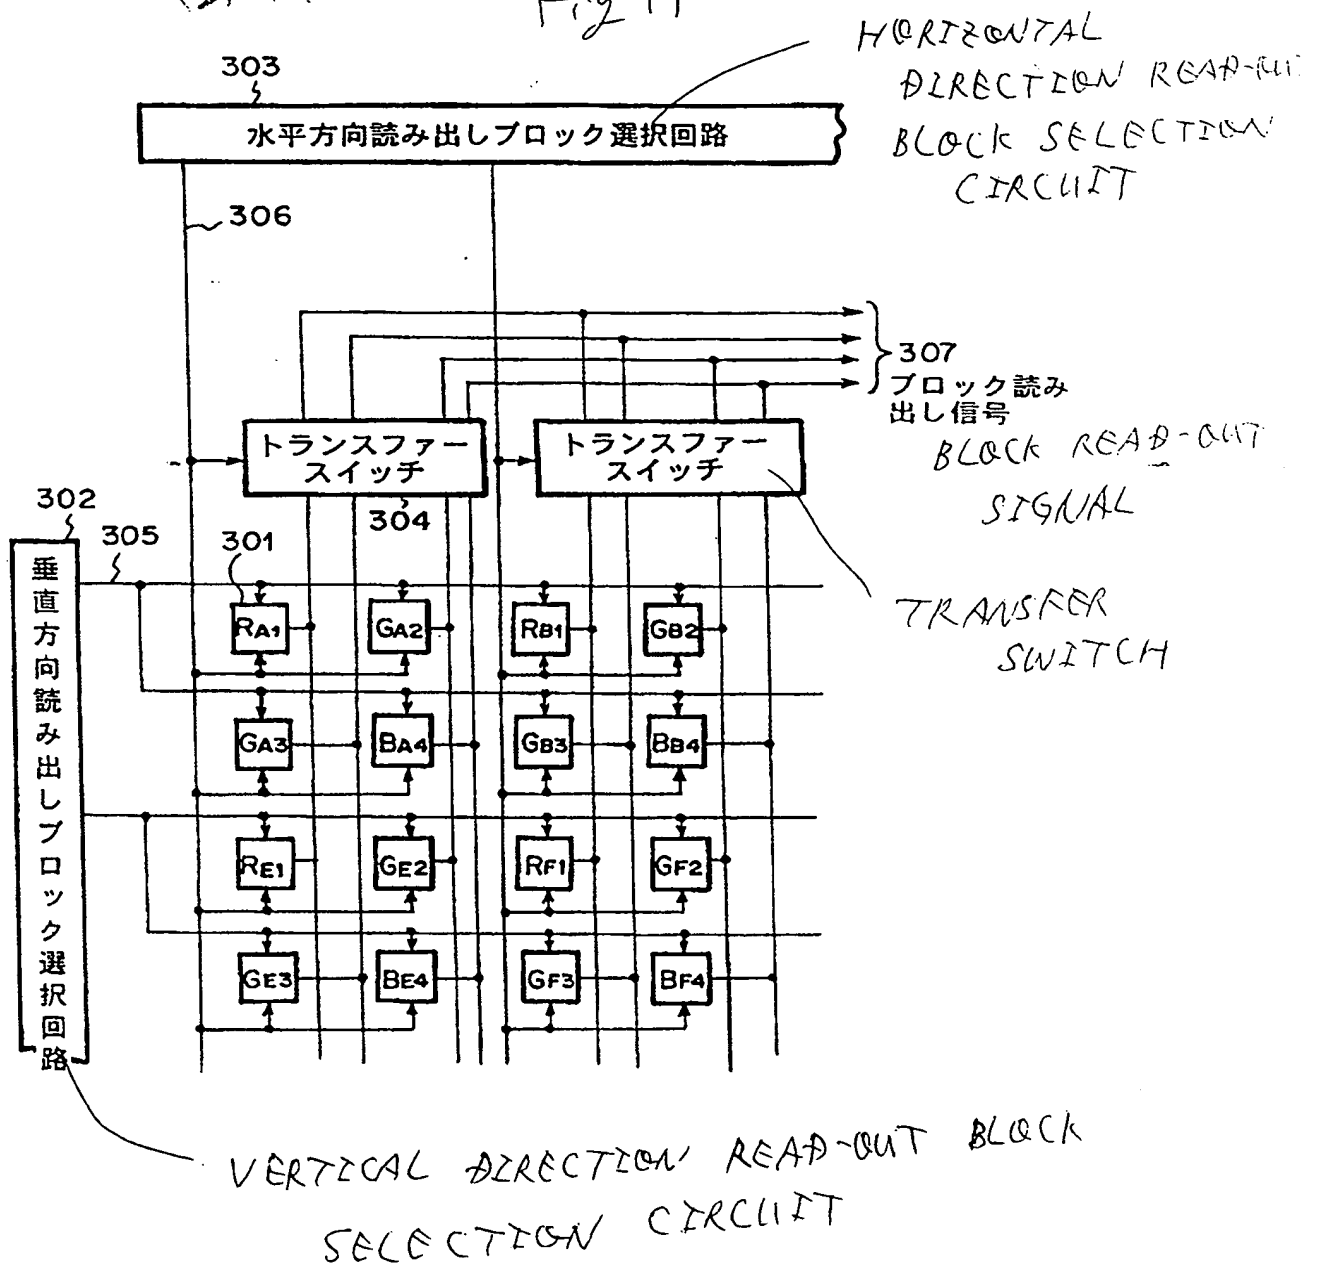 Fig 11
HORIZONTAL
DIRECTION READ-OUT
BLOCK SELECTION
CIRCUIT
303
水平方向読み出しブロック選択回路
306
307
ブロック読み
出し信号
BLOCK READ-OUT
SIGNAL
トランスファー
スイッチ
トランスファー
スイッチ
304
TRANSFER
SWITCH
302
305
301
垂直方向読み出しブロック選択回路
RA1 GA2 RB1 GB2
GA3 BA4 GB3 BB4
RE1 GE2 RF1 GF2
GE3 BE4 GF3 BF4
VERTICAL DIRECTION READ-OUT BLOCK
SELECTION CIRCUIT